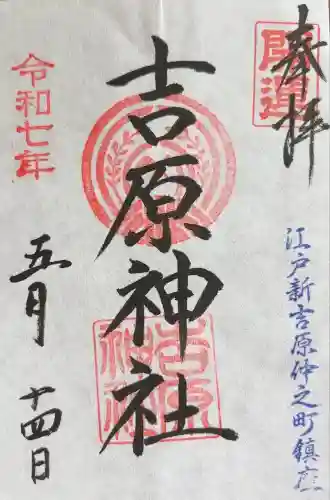 奉拝
開運
江戸新吉原仲之町鎮座
吉原神社
吉原神社
令和七年
五月十四日